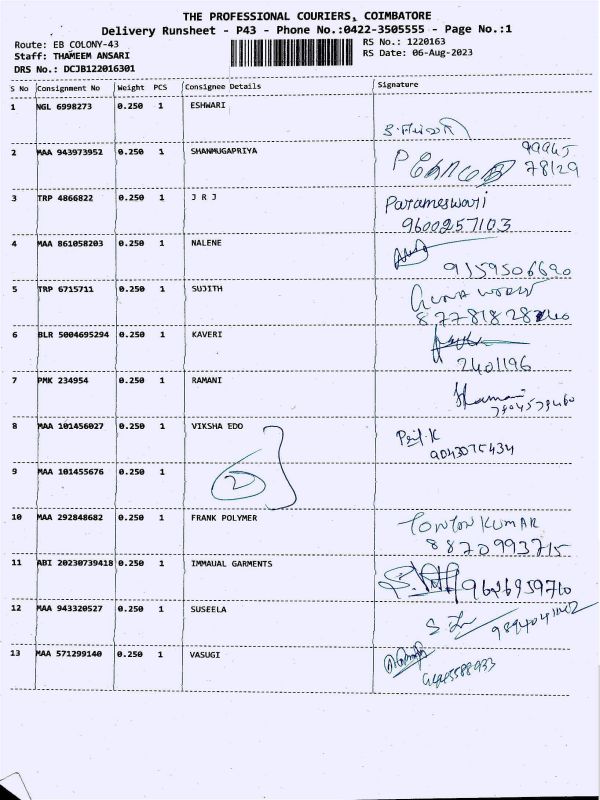 THE PROFESSIONAL COURIERS, COIMBATORE
Delivery Runsheet - P43 - Phone No.:0422-3505555 - Page No.:1
Route: EB COLONY-43 RS No.: 1220163
Staff: THAMEEM ANSARI RS Date: 06-Aug-2023
DRS No.: DCJB122016301
S No Consignment No Weight PCS Consignee Details Signature
1 NGL 6998273 0.250 1 ESHWARI
2 MAA 943973952 0.250 1 SHANMUGAPRIYA 99945
78129
3 TRP 4866822 0.250 1 J R J Parameswari
9600257103
4 MAA 861058203 0.250 1 NALENE
9159506690
5 TRP 6715711 0.250 1 SUJITH
6 BLR 5004695294 0.250 1 KAVERI
2401196
7 PMK 234954 0.250 1 RAMANI
8 MAA 101456027 0.250 1 VIKSHA EDO
9043075434
9 MAA 101455676 0.250 1 2
10 MAA 292848682 0.250 1 FRANK POLYMER KUMAR
8870993715
11 ABI 20230739418 0.250 1 IMMAUAL GARMENTS 9626959710
12 MAA 943320527 0.250 1 SUSEELA
13 MAA 571299140 0.250 1 VASUGI